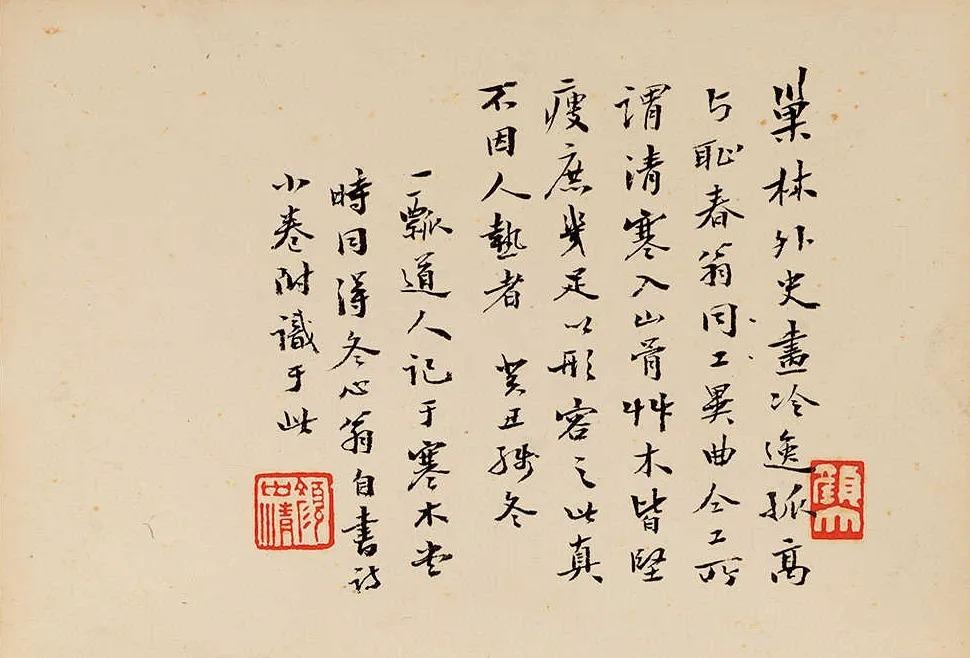 巢林外史畫冷逸孤高
与耻春翁同工異曲工所
謂清寒入山骨艸木皆堅
瘦庶幾足以形容之此真
不因人熱者 癸丑殘冬
一瓢道人记于寒木堂
時同得冬心翁自書詩
小卷附識于此